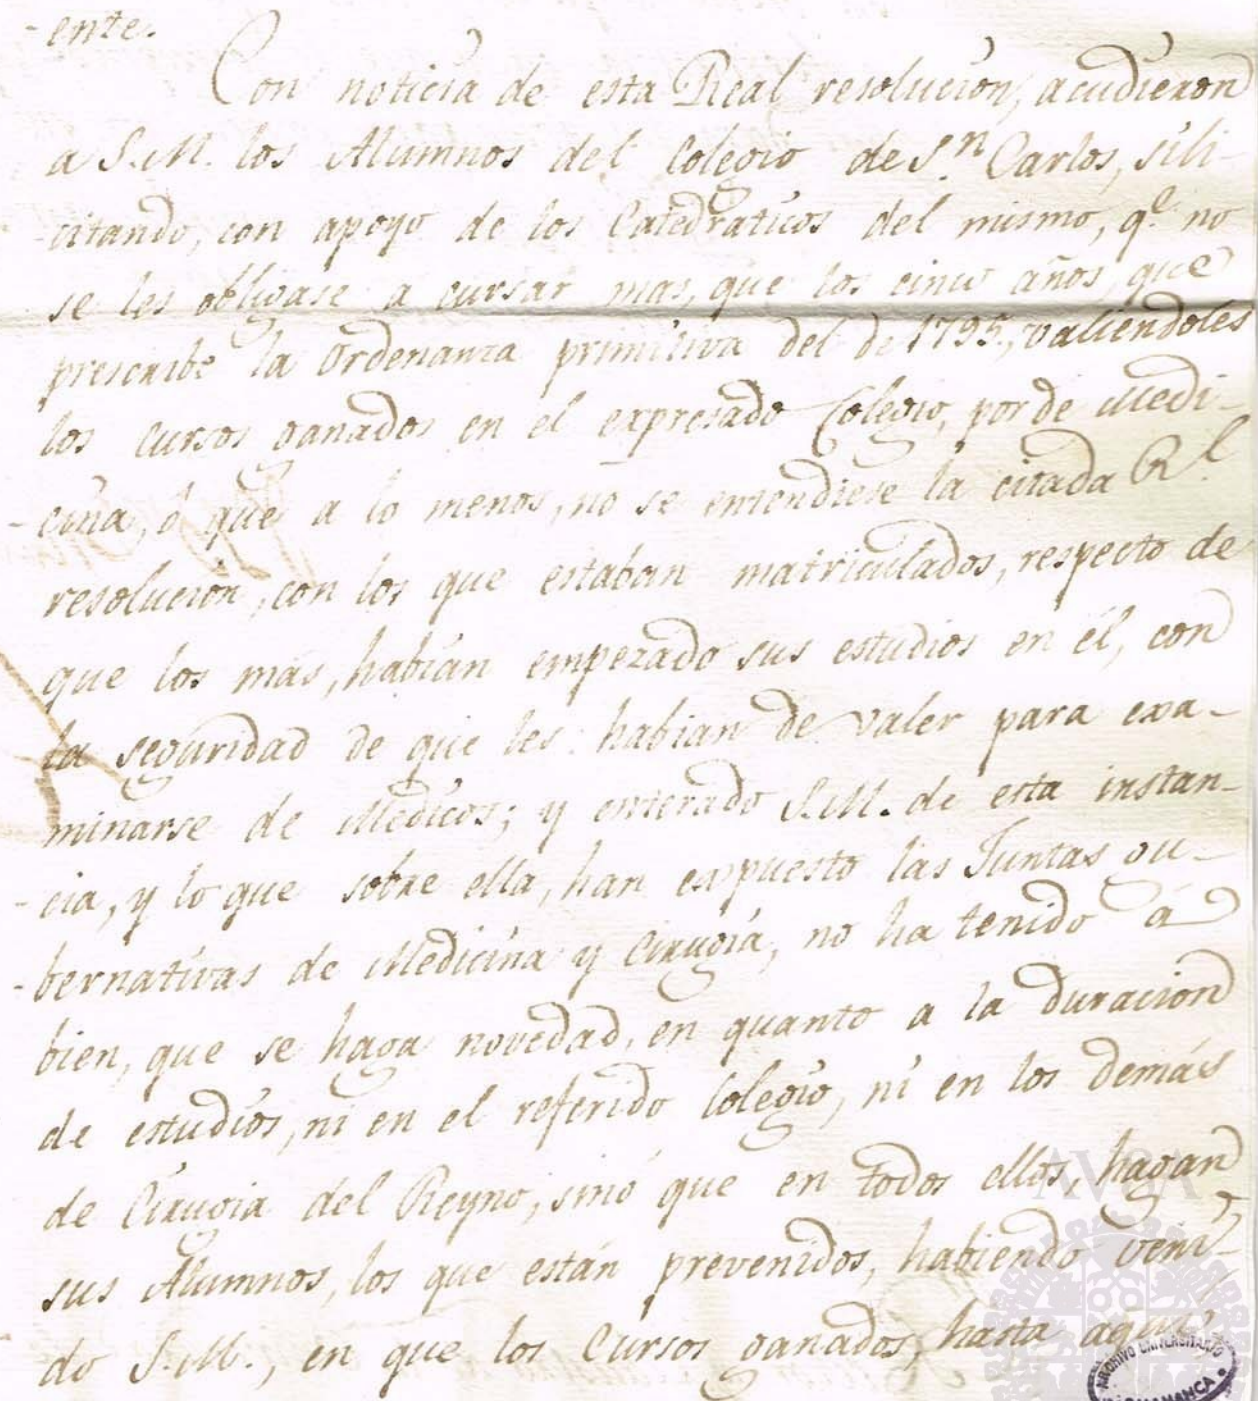 -ente.
Con noticia de esta Real resolucion, acudieron
a S.M. los Alumnos del Colegio de S.n Carlos, sili-
-citando, con apoyo de los Catedraticos del mismo, q.e no
se les obligase a cursar mas, que los cinco años, que
prescribe la Ordenanza primitiva del de 1795, valiendoles
los cursos ganados en el expresado Colegio, por de Medi-
-cina, ó que a lo menos, no se entendiese la citada R.l
resolucion, con los que estaban matriculados, respecto de
que los mas, habian empezado sus estudios en él, con
la seguridad de que les habian de valer para exa-
minarse de Medicos; y enterado S.M. de esta instan-
-cia, y lo que sobre ella, han expuesto las Juntas gu-
-bernativas de Medicina y Cirugia, no ha tenido á
bien, que se haga novedad, en quanto a la duracion
de estudios, ni en el referido Colegio, ni en los demás
de Cirugia del Reyno, sinó que en todos ellos, hagan
sus Alumnos, los que están prevenidos, habiendo veni-
do S.M., en que los Cursos ganados, hasta aqui,
AVSA
ARCHIVO UNIVERSITARIO
SALAMANCA